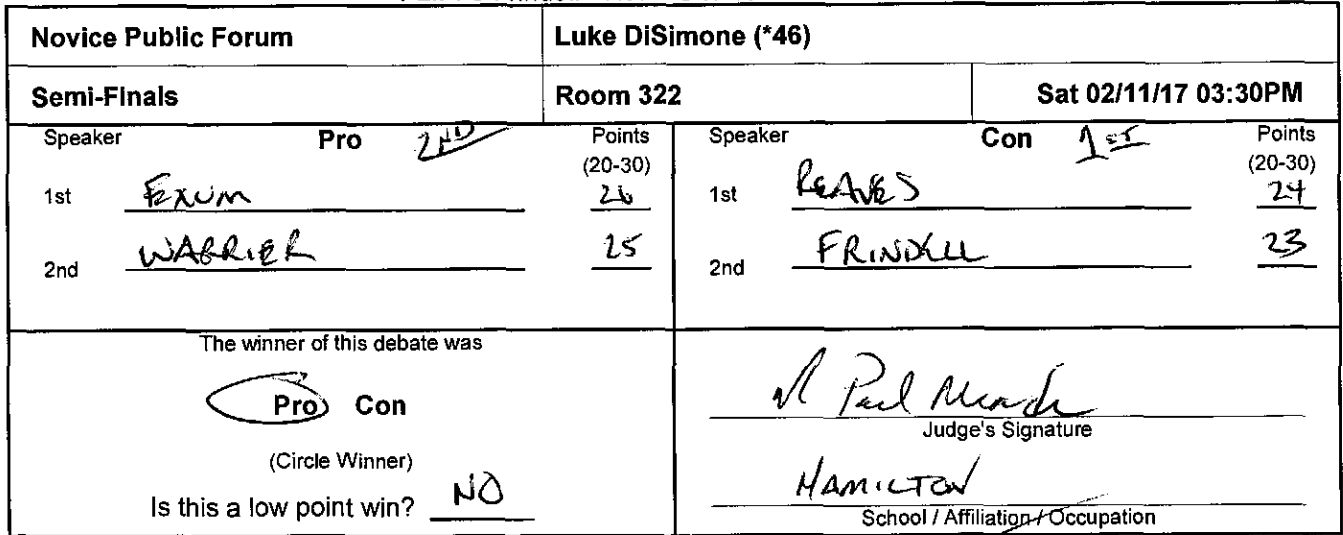 Novice Public Forum
Luke DiSimone (*46)
Semi-Finals
Room 322
Sat 02/11/17 03:30PM
Speaker Pro 2ND Points
(20-30)
1st EXUM 26
2nd WARRIER 25
Speaker Con 1ST Points
(20-30)
1st REAVES 24
2nd 23
The winner of this debate was
Pro Con
(Circle Winner)
Is this a low point win? NO
Paul
Judge's Signature
HAMILTON
School / Affiliation / Occupation